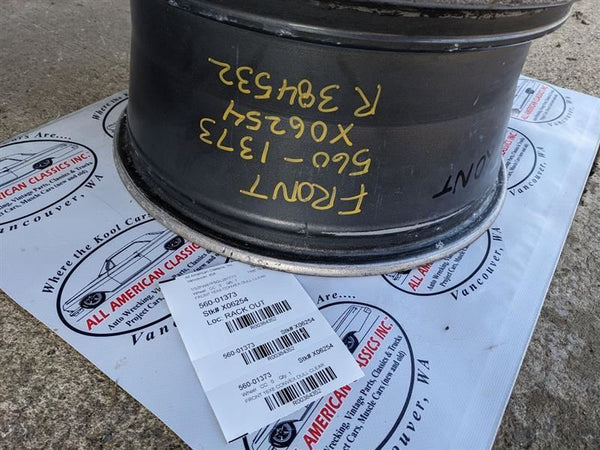 FRONT
560-1373
X06254
R 384532
FRONT
560-01373
Stk# X06254
Loc: RACK OUT
R00384352
Stk# X06254
560-01373
R00384352
Stk# X06254
560-01373
Wheel CO: S Qty: 1
R00384352
Where the Kool Cars Are....
ALL AMERICAN CLASSICS INC.
Auto Wrecking, Vintage Parts, Classics & Trucks
Project Cars, Muscle Cars (new and old)
Vancouver, WA